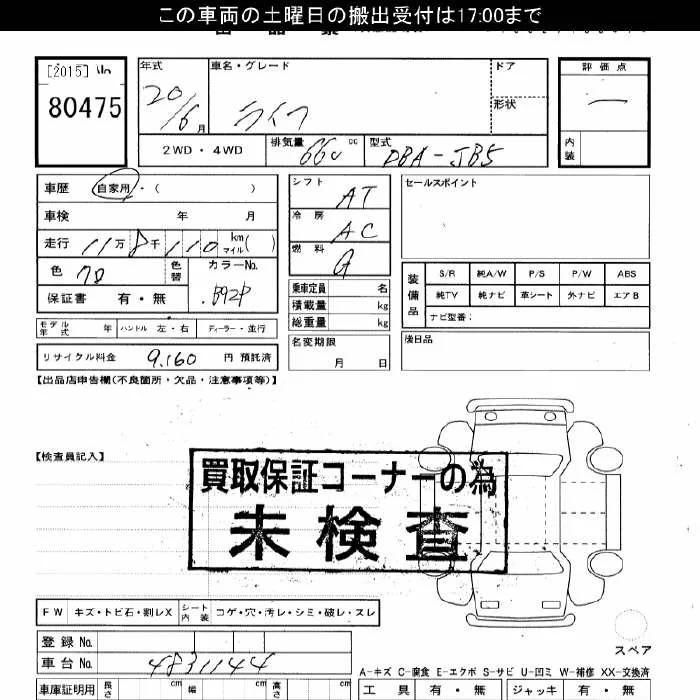 この車両の土曜日の搬出受付は17:00まで
[2015]
80475
年式 20/6月
車名・グレード ライフ
ドア
形状
評価点 一
内装
2WD・4WD
排気量 660 cc
型式 DBA-JB5
車歴 自家用・( )
車検 年 月
走行 11万8千110 km マイル( )
色 クロ 色替
カラーNo. B92P
保証書 有・無
シフト AT
冷房 AC
燃料 G
乗車定員 名
積載量 kg
総重量 kg
名変期限 月 日
セールスポイント
装備品
S/R 純A/W P/S P/W ABS
純TV 純ナビ 革シート 外ナビ エアB
ナビ型番:
後日品
モデル年式 年 ハンドル 左・右 ディーラー・並行
リサイクル料金 9,160 円 預託済
【出品店申告欄(不良箇所・欠品・注意事項等)】
【検査員記入】
買取保証コーナーの為
未検査
FW キズ・トビ石・割レX シート内装 コゲ・穴・汚レ・シミ・破レ・スレ
スペア
登録No.
車台No. 4831144
A-キズ C-腐食 E-エクボ S-サビ U-凹ミ W-補修 XX-交換済
車庫証明用 長さ cm 幅 cm 高さ cm
工具 有・無 ジャッキ 有・無